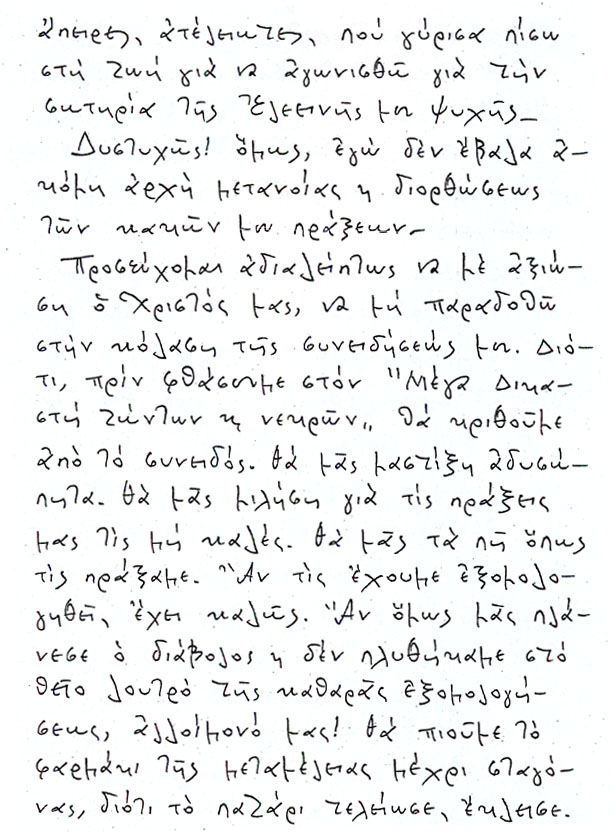 ἄπειρες, ἀτέλειωτες, πού γύρισα πίσω
στή ζωή γιά νά ἀγωνισθῶ γιά τήν
σωτηρία τῆς ἐλεεινῆς μου ψυχῆς–
Δυστυχῶς! ὅμως, ἐγώ δέν ἔβαλα ἀ–
κόμη ἀρχή μετανοίας ἤ διορθώσεως
τῶν κακῶν μου πράξεων–
Προσεύχομαι ἀδιαλείπτως νά μέ ἀξιώ–
ση ὁ Χριστός μας, νά μή παραδοθῶ
στήν κόλαση τῆς συνειδήσεώς μου. Διό–
τι, πρίν φθάσουμε στόν "Μέγα Δικα–
στή ζώντων κ νεκρῶν,, θά κριθοῦμε
ἀπό τό συνειδός. Θά μᾶς μαστίξη ἀδυσώ–
πητα. Θά μᾶς μιλήση γιά τίς πράξεις
μας τίς μή καλές. Θά μᾶς τά πῆ ὅπως
τίς πράξαμε. Ἄν τίς ἔχουμε ἐξομολο–
γηθεῖ, ἔχει καλῶς. Ἄν ὅμως μᾶς πλά–
νεσε ὁ διάβολος κ δέν πλυθήκαμε στό
θεῖο λουτρό τῆς καθαρᾶς ἐξομολογή–
σεως, ἀλλοίμονό μας! Θά πιοῦμε τό
φαρμάκι τῆς μεταμέλειας μέχρι σταγό–
νας, διότι τό παζάρι τελείωσε, ἔκλεισε.